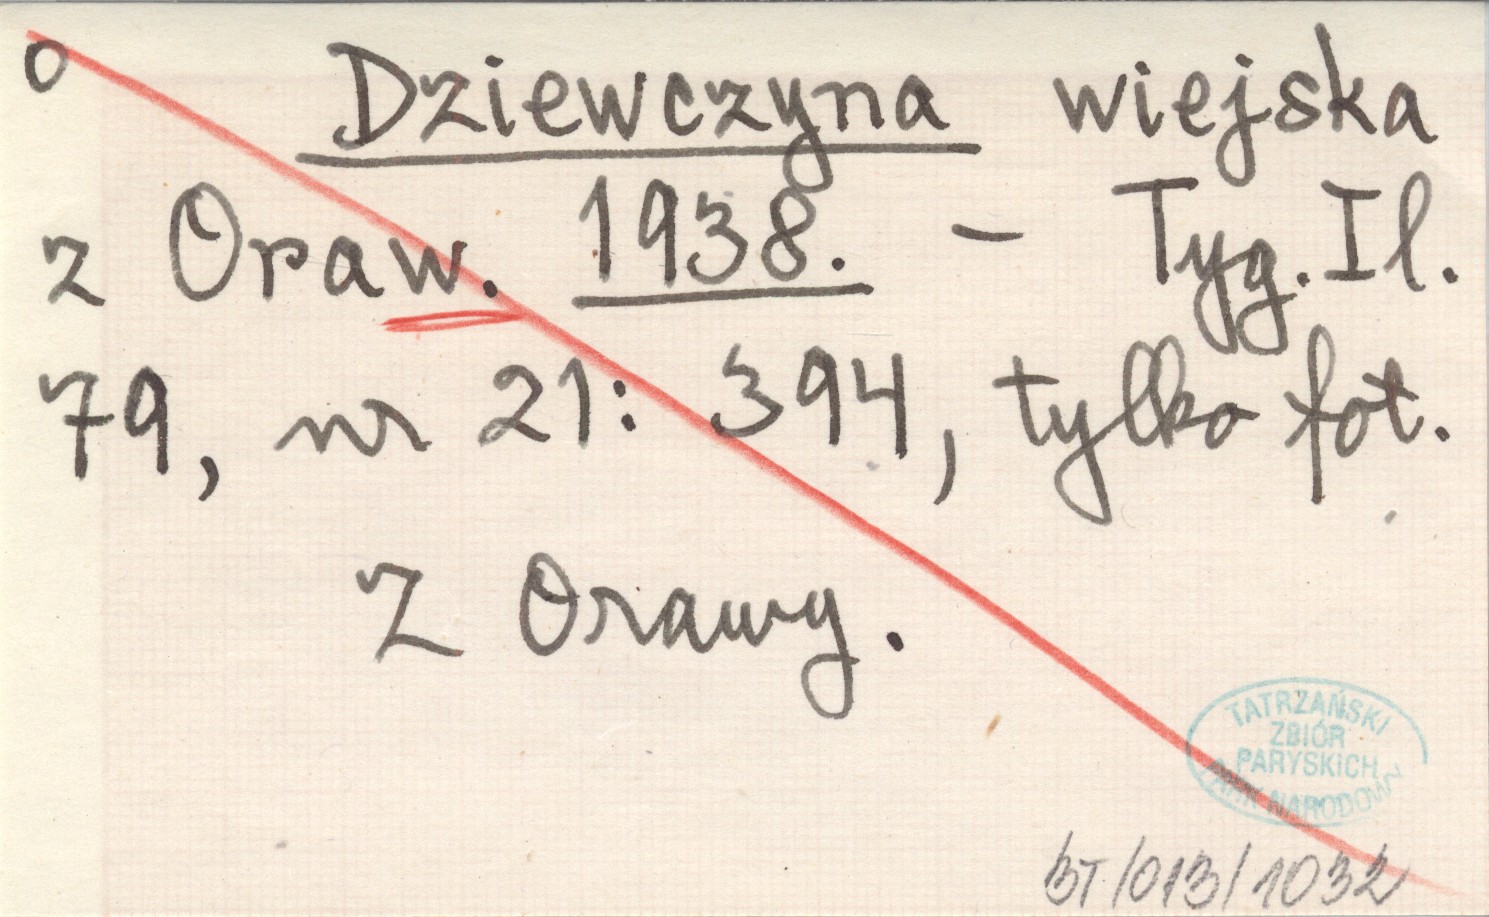 o Dziewczyna wiejska
z Oraw. 1938. - Tyg. Il.
79, nr 21: 394, tylko fot.
Z Orawy.
TATRZAŃSKI
ZBIÓR
PARYSKICH
PARK NARODOWY
BT/013/1032